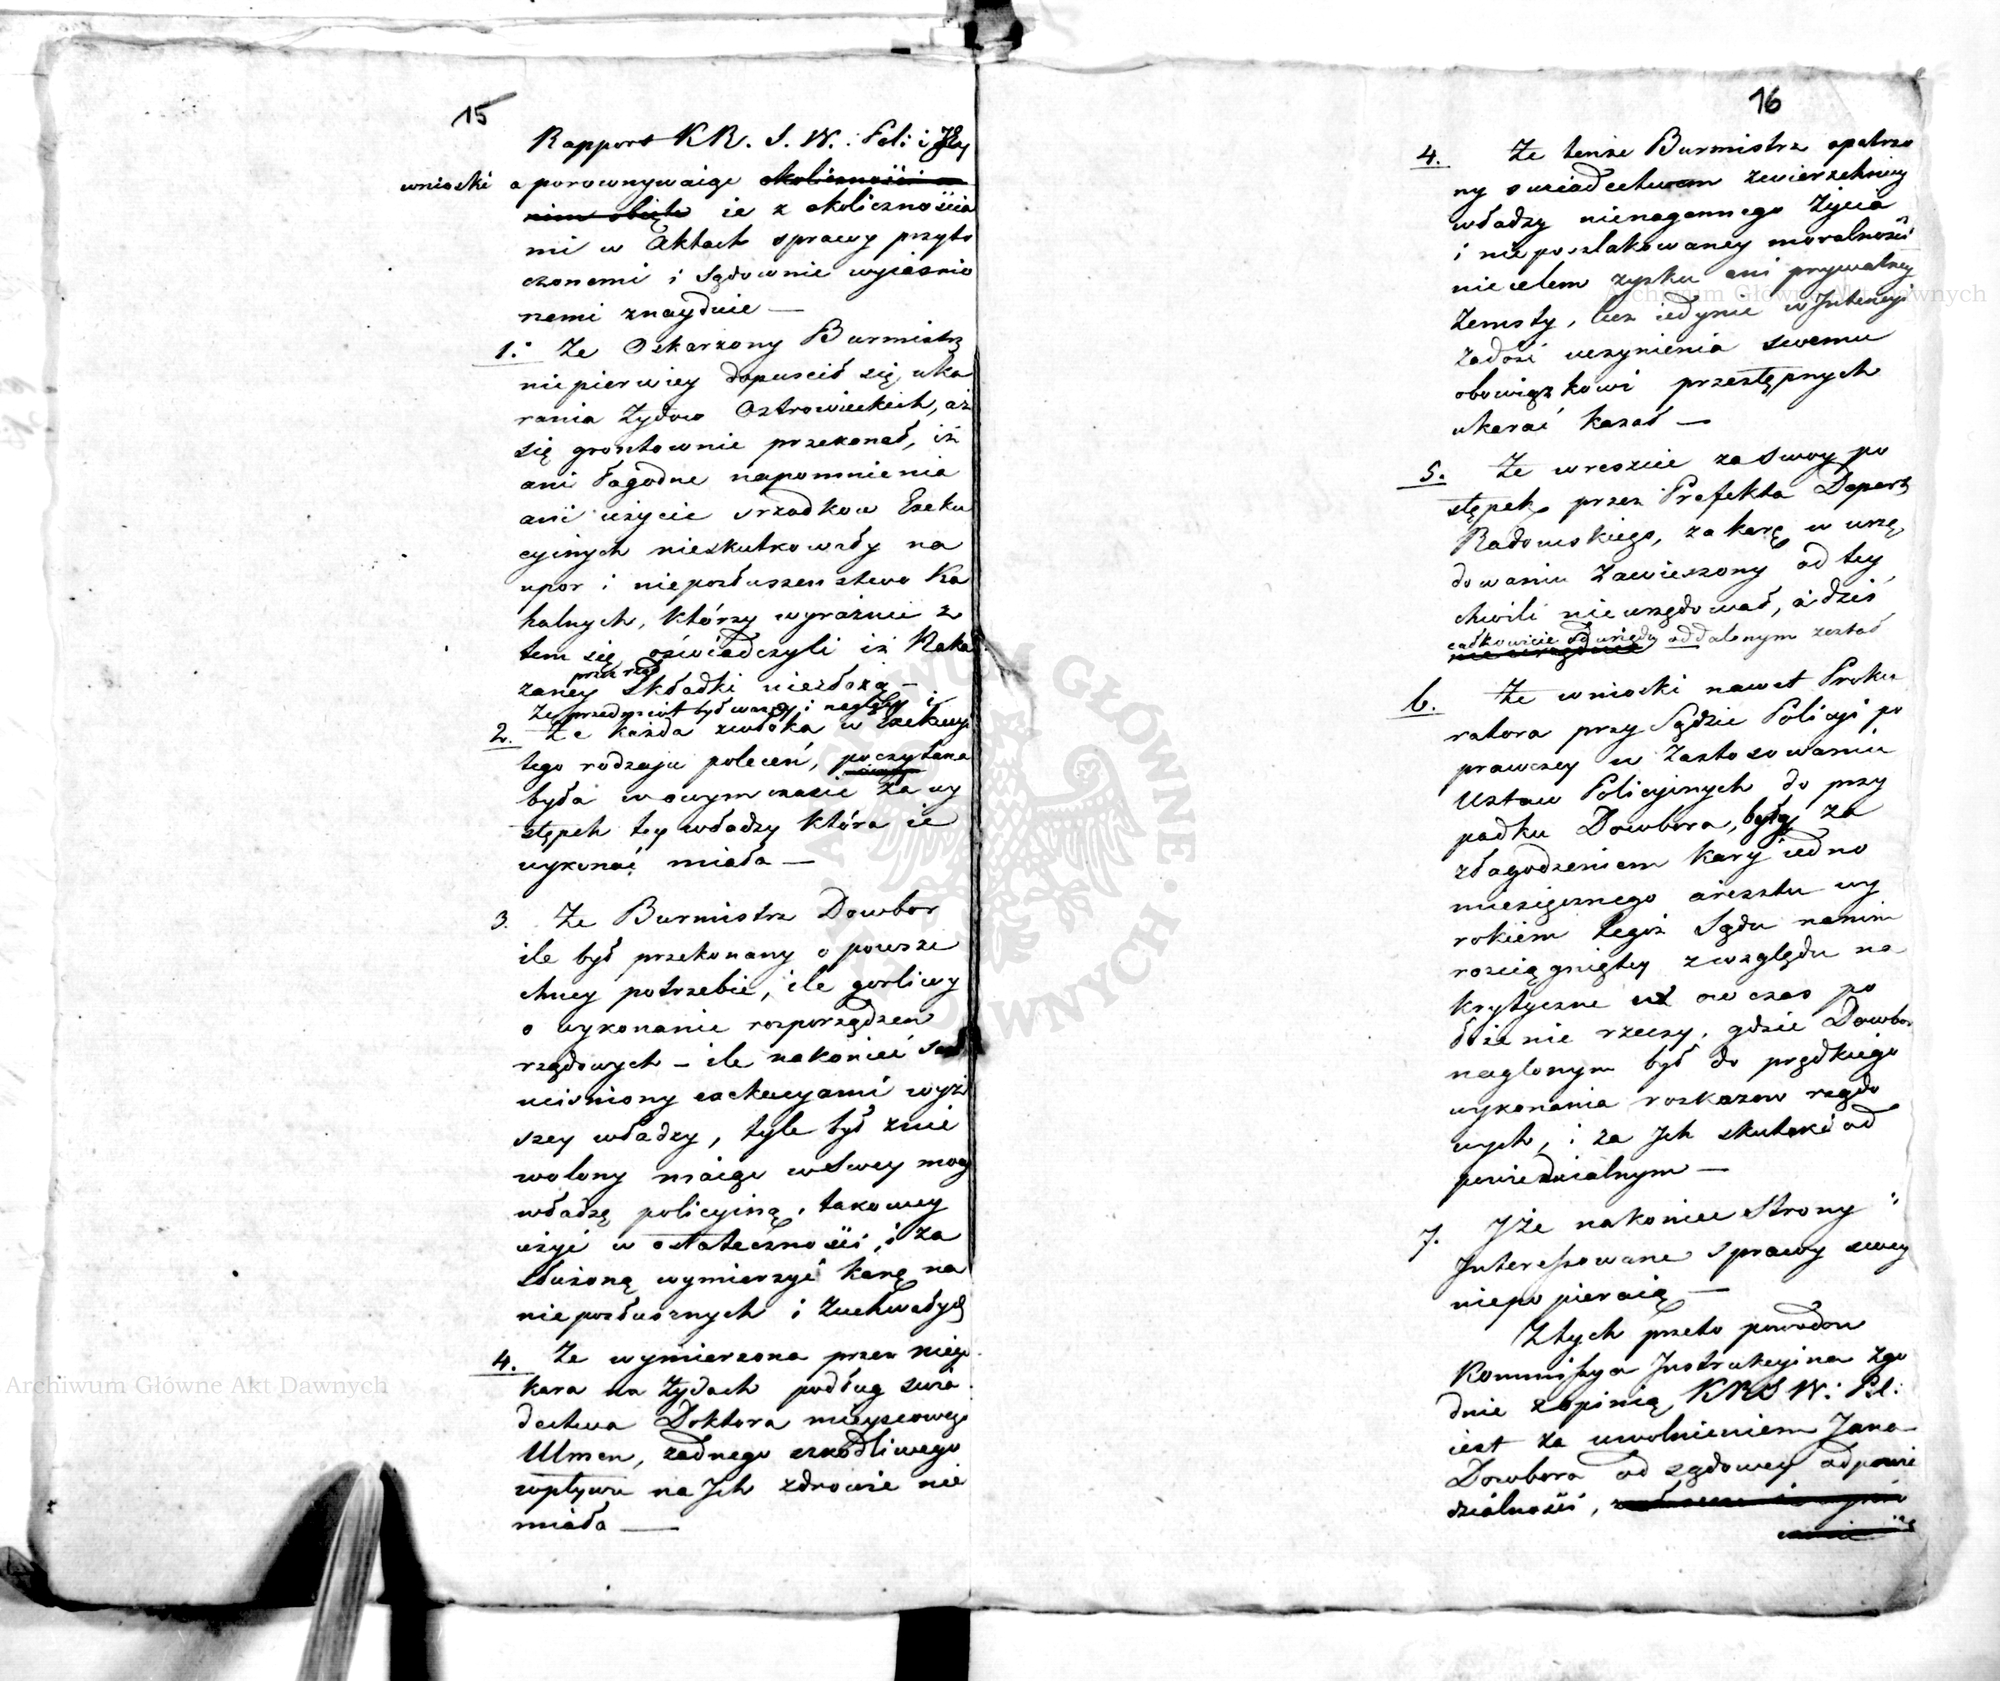 15
Rapport KR. S. W. Pol: i Jey
wnioski a porownywaiąc okoliczności w
nim obięte ie z okolicznościa
mi w Aktach sprawy przyto
czonemi i Sądownie wyiaśnio
nemi znayduie —
1. Że Oskarzony Burmistrz
niepierwiey dopuscił się uka
rania Żydow Ostrowieckich, aż
się gruntownie przekonał, iż
ani łagodne napomnienia
ani użycie srzodkow Exeku
cyinych nieskutkowały na
upor i nieposłuszenstwo Ka
halnych, którzy wyraźnie z
tem się oświadczyli iż Naka
przez rząd
zaney Składki niezłożą —
że przedmiot był ważny i nagły i
2. Że każda zwłoka w Exekucyi
tego rodzaju poleceń, poczytana
była wowym czasie za wy
stępek tey władzy która ie
wykonać miała —
3. Że Burmistrz Dowbor
ile był przekonany o powsze
chney potrzebie, ile gorliwy
o wykonanie rozporządzen
rządowych — ile nakoniec sam
uciśniony exekucyami wyż
szey władzy, tyle był znie
wolony maiąc wSwey mocy
władzę policyiną, takowey
użyć w ostateczności, i za
służoną wymierzyć karę na
nieposłusznych i zuchwałych
4. Że wymierzona przez niego
kara na Żydach podług swia
dectwa Doktora mieyscowego
Ulmen, żadnego szkodliwego
wpływu na Ich zdrowie nie
miała —
16
4. Że tenże Burmistrz opatrzo
ny swiadectwem zwierzchniey
władzy nienagannego Życia
i nieposzlakowaney moralności
nie celem zysku ani prywatney
Zemsty, lecz iedynie w Intencyi
Zadość uczynienia swemu
obowiązkowi przestępnych
ukarać kazał —
5. Że wreszcie zaswoy po
stępek przez Prefekta Depart
Radomskiego, za karę w urzę
dowaniu Zawieszony od tey
chwili nie urzędował, a dziś
całkowicie od urzędu oddalonym został
6. Że wnioski nawet Proku
ratora przy Sądzie Policyi po
prawczey w Zastosowaniu
Ustaw Policyinych do przy
padku Dowbora, były za
złagodzeniem kary iedno
miesięcznego aresztu wy
rokiem tegoż Sądu nanim
rosciągniętey zwzględu na
krytyczne w ow czas po
łożenie rzeczy, gdzie Dowbor
naglonym był do prędkiego
wykonania rozkazow rządo
wych, i za Ich skutek od
powiedzialnym —
7. Iże nakoniec Strony
Interessowane sprawy swey
niepopieraią —
Ztych przeto powodow
Kommissya Instrukcyina zgo
dnie zopinią KRSW: Pol:
iest za uwolnieniem Jana
Dowbora od sądowey odpowie
dzialności,
Archiwum Główne Akt Dawnych
Archiwum Główne Akt Dawnych
ARCHIWUM GŁÓWNE AKT DAWNYCH